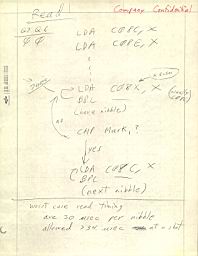 Company Confidential
Read
Q7 Q6
φ φ
LDA C08C, X
LDA C08E, X
LDA C08X, X
BPL
(have nibble)
no
CMP Mark, ?
yes
LDA C08C, X
BPL
(next nibble)
worst case read timing
are 30 µsec per nibble
allowed >34 µsec